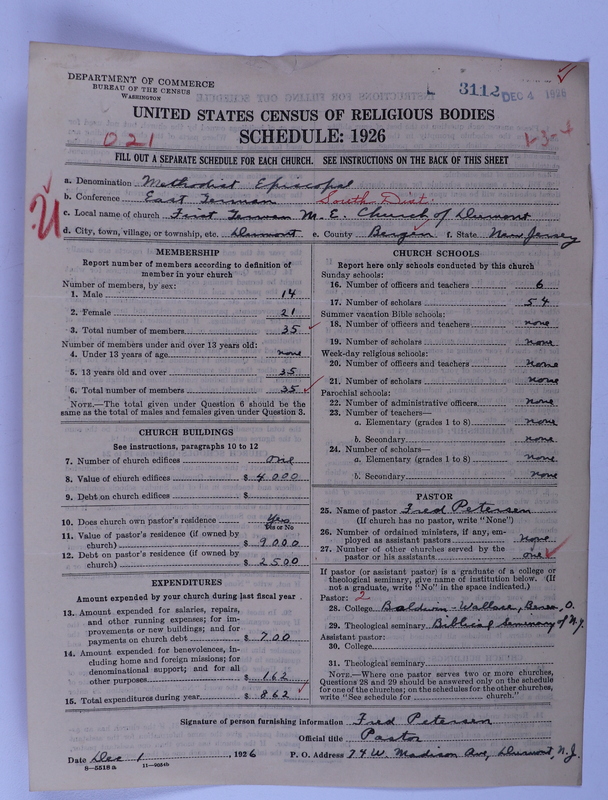 DEPARTMENT OF COMMERCE
BUREAU OF THE CENSUS
WASHINGTON
L 3112 DEC 4 1926
UNITED STATES CENSUS OF RELIGIOUS BODIES
021 SCHEDULE: 1926 1-3-4
FILL OUT A SEPARATE SCHEDULE FOR EACH CHURCH. SEE INSTRUCTIONS ON THE BACK OF THIS SHEET
a. Denomination Methodist Episcopal
b. Conference East German South Dist.
c. Local name of church First German M. E. Church of Dumont
d. City, town, village, or township, etc. Dumont e. County Bergen f. State New Jersey
MEMBERSHIP
Report number of members according to definition of
member in your church
Number of members, by sex:
1. Male 14
2. Female 21
3. Total number of members 35
Number of members under and over 13 years old:
4. Under 13 years of age none
5. 13 years old and over 35
6. Total number of members 35
NOTE.—The total given under Question 6 should be the
same as the total of males and females given under Question 3.
CHURCH BUILDINGS
See instructions, paragraphs 10 to 12
7. Number of church edifices one
8. Value of church edifices $ 4000
9. Debt on church edifices $
10. Does church own pastor's residence Yes
Yes or No
11. Value of pastor's residence (if owned by
church) $ 9000
12. Debt on pastor's residence (if owned by
church) $ 2500
EXPENDITURES
Amount expended by your church during last fiscal year
13. Amount expended for salaries, repairs,
and other running expenses; for im-
provements or new buildings; and for
payments on church debt $ 700
14. Amount expended for benevolences, in-
cluding home and foreign missions; for
denominational support; and for all
other purposes $ 162
15. Total expenditures during year $ 862
CHURCH SCHOOLS
Report here only schools conducted by this church
Sunday schools:
16. Number of officers and teachers 6
17. Number of scholars 54
Summer vacation Bible schools:
18. Number of officers and teachers none
19. Number of scholars none
Week-day religious schools:
20. Number of officers and teachers none
21. Number of scholars none
Parochial schools:
22. Number of administrative officers none
23. Number of teachers—
a. Elementary (grades 1 to 8) none
b. Secondary none
24. Number of scholars—
a. Elementary (grades 1 to 8) none
b. Secondary none
PASTOR
25. Name of pastor Fred Petersen
(If church has no pastor, write "None")
26. Number of ordained ministers, if any, em-
ployed as assistant pastors none
27. Number of other churches served by the
pastor or his assistants one
If pastor (or assistant pastor) is a graduate of a college or
theological seminary, give name of institution below. (If
not a graduate, write "No" in the space indicated.)
Pastor: 2
28. College Baldwin-Wallace, Berea, O.
29. Theological seminary Biblical Seminary of N.Y.
Assistant pastor:
30. College
31. Theological seminary
NOTE.—Where one pastor serves two or more churches,
Questions 28 and 29 should be answered only on the schedule
for one of the churches; on the schedules for the other churches,
write "See schedule for church."
Signature of person furnishing information Fred Petersen
Official title Pastor
Date Dec 1, 1926 P. O. Address 74 W. Madison Ave, Dumont, N.J.
8—5518 a 11—9054b